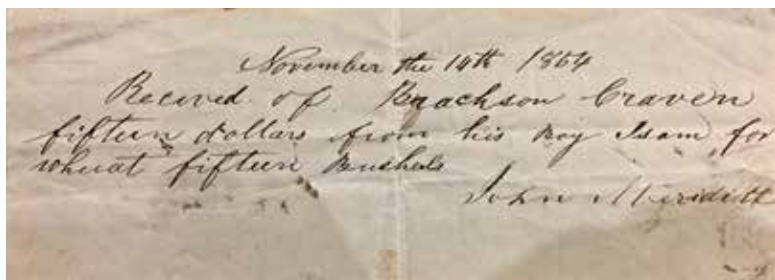 November the 14th 1864
Recived of Brachson Craven
fifteen dollars from his Boy Isam for
wheat fifteen Bushels
John Meridith